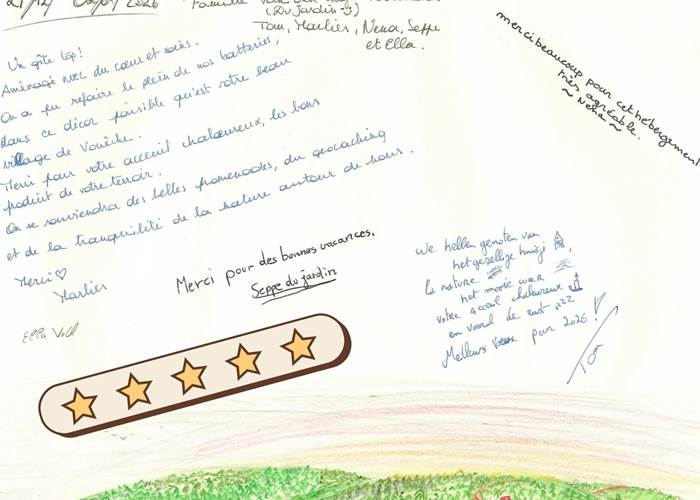 21/12 2026 Famille
(Du Jardin)
Tom, Marlies, Nena, Seppe
et Ella.
Un gîte top!
Aménagé avec du cœur et soins.
On a pu refaire le plein de nos batteries,
dans ce décor paisible qu'est votre beau
village de Vonêche.
Merci pour votre acceuil chaleureux, les bons
produit de votre terroir.
On se souviendra des belles promenades, du geocaching
et de la tranquilité de la nature autour de nous.
Merci ♡
Marlies
Ella
merci beaucoup pour cet hébergement
très agréable.
~ Nena ~
Merci pour des bonnes vacances.
Seppe du jardin
We hebben genoten van
het gezellige huisje,
la nature
het mooie weer
votre accueil chaleureux
en vooral de rust zzz
Meilleurs vœux pour 2026!
Tom